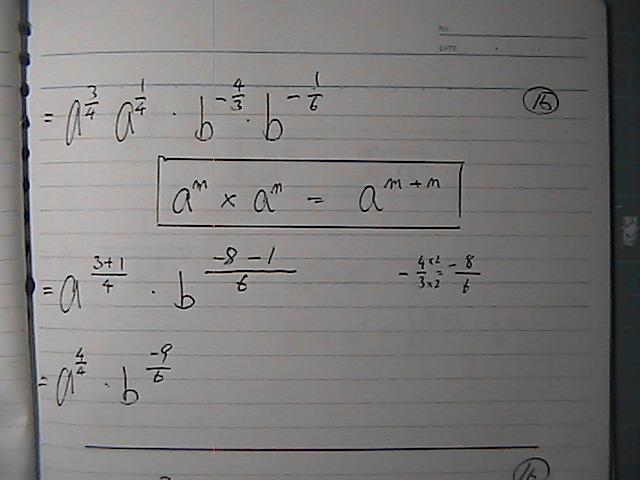 NO.
DATE
= a^{3/4} a^{1/4} · b^{-4/3} · b^{-1/6} (15)
a^m × a^n = a^{m+n}
= a^{(3+1)/4} · b^{(-8-1)/6} -4×2/3×2 = -8/6
= a^{4/4} · b^{-9/6}
(16)